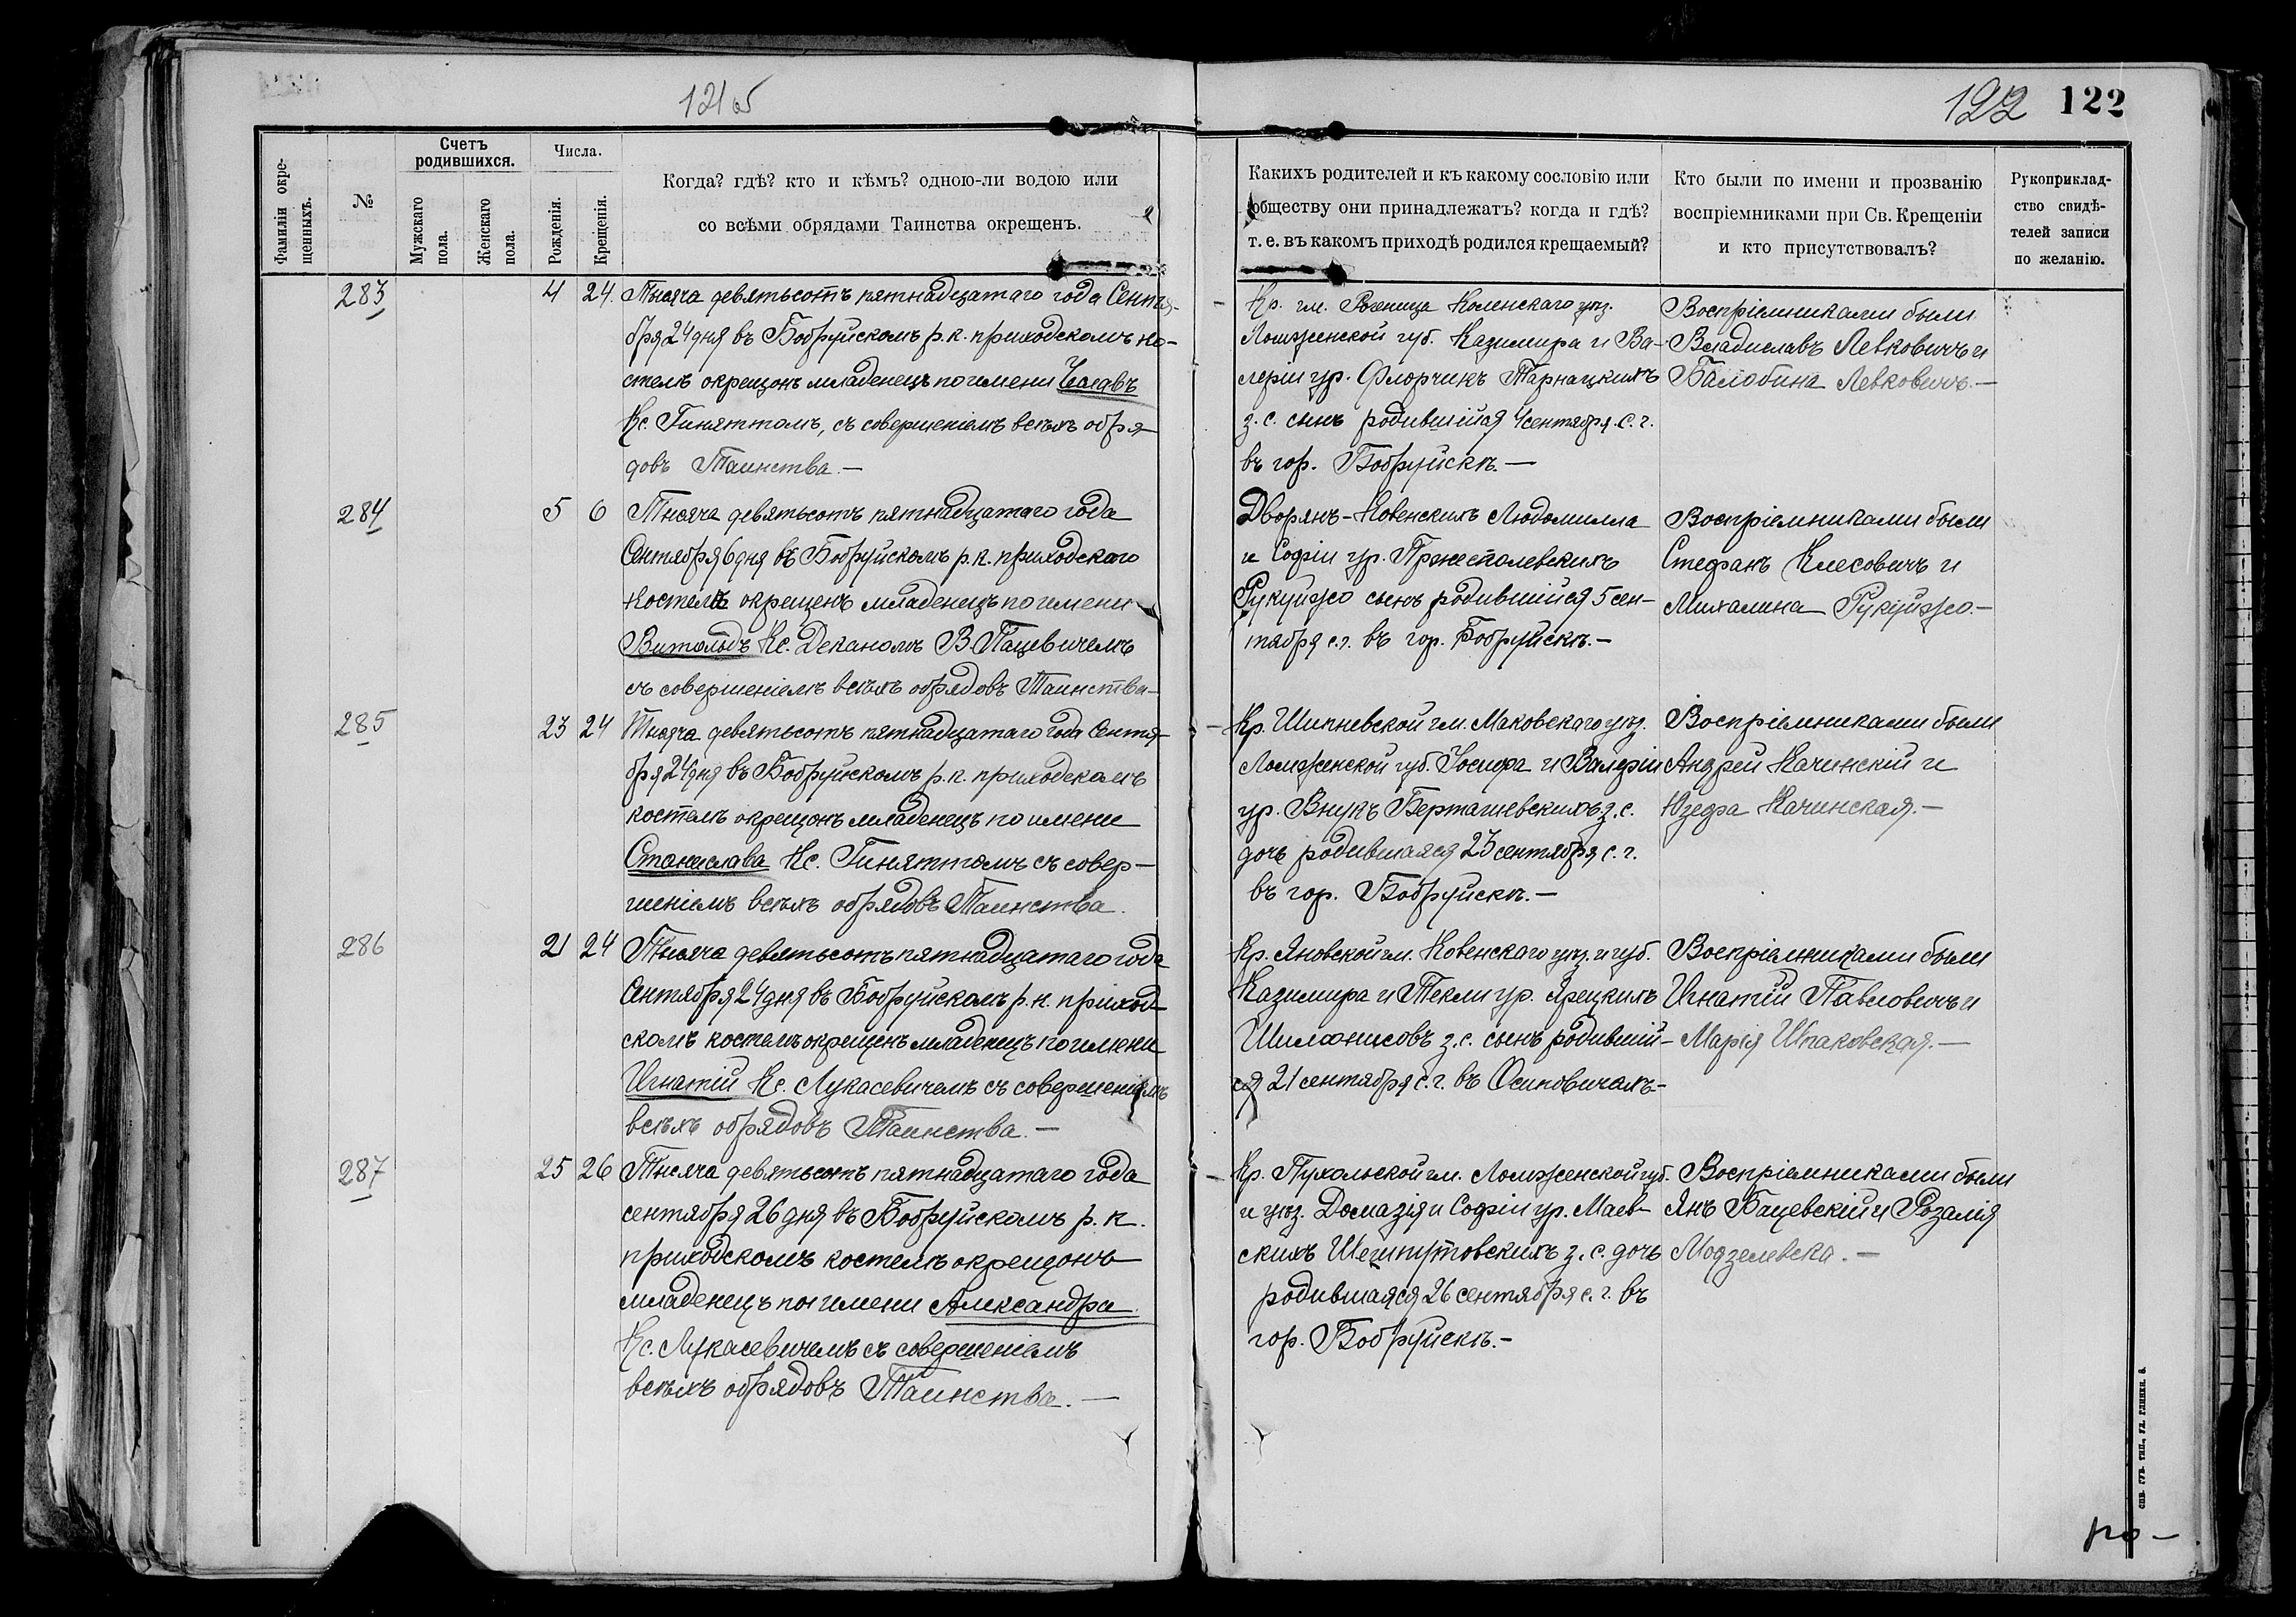 121 об
122 122
Фамиліи окре-
щенныхъ.
№
Счетъ
родившихся.
Мужскаго
пола.
Женскаго
пола.
Числа.
Рожденія.
Крещенія.
Когда? гдѣ? кто и кѣмъ? одною-ли водою или
со всѣми обрядами Таинства окрещенъ.
Какихъ родителей и къ какому сословію или
обществу они принадлежатъ? когда и гдѣ?
т. е. въ какомъ приходѣ родился крещаемый?
Кто были по имени и прозванію
воспріемниками при Св. Крещеніи
и кто присутствовалъ?
Рукоприклад-
ство свидѣ-
телей записи
по желанію.
283 4 24. Тысяча девятьсотъ пятнадцатаго года Сентя-
бря 24 дня въ Бобруйскомъ р. к. приходскомъ ко-
стелѣ окрещонъ младенецъ по имени Чеславъ
Кс. Гиняттомъ, съ совершеніемъ всѣхъ обря
довъ Таинства. —
Кр. гм. уѣз.
Ломженской губ. Казимира и Ва-
леріи ур. Флорчикъ Тарнацкихъ
з. с. сынъ родившійся 4 сентября с. г.
въ гор. Бобруйскѣ. —
Воспріемниками были
Владиславъ Левковичъ и
Левковичъ. —
284 5 6 Тысяча девятьсотъ пятнадцатаго года
Сентября 6 дня въ Бобруйскомъ р. к. приходскаго
костелѣ окрещенъ младенецъ по имени
Витольдъ Кс. Деканомъ В. Пацевичемъ
съ совершеніемъ всѣхъ обрядовъ Таинства —
Дворянъ - Ковенскихъ Людомилла
и Софіи ур.
Рукуйжо сынъ родившійся 5 сен-
тября с. г. въ гор. Бобруйскѣ. —
Воспріемниками были
Стефанъ и
Михалина Рукуйжо. —
285 23 24 Тысяча девятьсотъ пятнадцатаго года Сентя-
бря 24 дня въ Бобруйскомъ р. к. приходскомъ
костелѣ окрещонъ младенецъ по имени
Станислава Кс. Гиняттомъ съ совер-
шеніемъ всѣхъ обрядовъ Таинства.
Кр. гм. Маковскаго уѣз.
Ломженской губ. Іосифа и Валеріи
ур. Внукъ з. с.
дочь родившаяся 23 сентября с. г.
въ гор. Бобруйскѣ. —
Воспріемниками были
Андрей Качинскій и
Юзефа Качинская. —
286 21 24 Тысяча девятьсотъ пятнадцатаго года
Сентября 24 дня въ Бобруйскомъ р. к. приход-
скомъ костелѣ окрещенъ младенецъ по имени
Игнатій Кс. Лукасевичемъ съ совершеніемъ
всѣхъ обрядовъ Таинства. —
Кр. Яновской гм. Ковенскаго уѣз. и губ.
Казимира и Текли ур. Ярецкихъ
з. с. сынъ родившій-
ся 21 сентября с. г. въ Осиповичахъ —
Воспріемниками были
Игнатій Павловичъ и
Марія Шпаковская. —
287 25 26 Тысяча девятьсотъ пятнадцатаго года
сентября 26 дня въ Бобруйскомъ р. к.
приходскомъ костелѣ окрещонъ
младенецъ по имени Александра
Кс. Лукасевичемъ съ совершеніемъ
всѣхъ обрядовъ Таинства. —
Кр. Пухальской гм. Ломженской губ.
и уѣз. и Софіи ур. Маев-
скихъ з. с. дочь
родившаяся 26 сентября с. г. въ
гор. Бобруйскѣ. —
Воспріемниками были
Янъ Бацевскій и Розалія
Модзелевска. —
СПВ. ГУБ. ТИП., УЛ. ГЛИНКИ, 6.